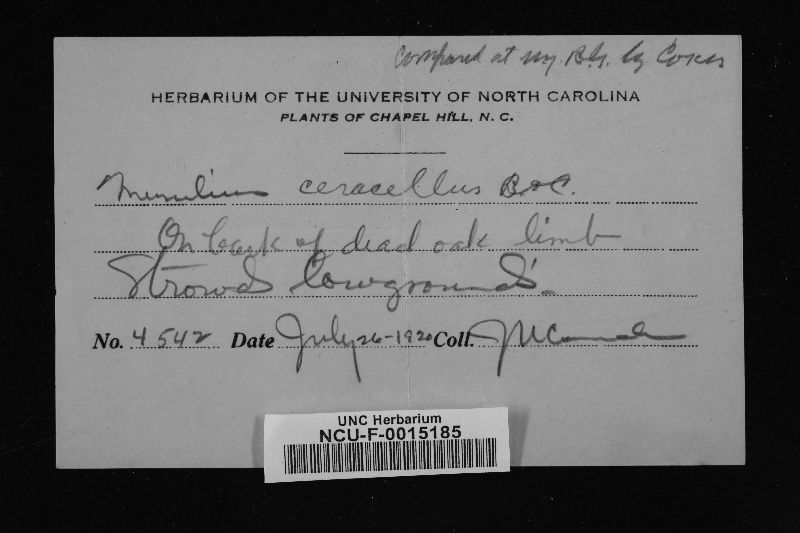 Compared at NY. B.G. by Coker
HERBARIUM OF THE UNIVERSITY OF NORTH CAROLINA
PLANTS OF CHAPEL HILL, N. C.
Merulius ceracellus B & C.
On bark of dead oak limb
Strowds Cowgrounds.
No. 4542 Date July 26-1920 Coll.
UNC Herbarium
NCU-F-0015185